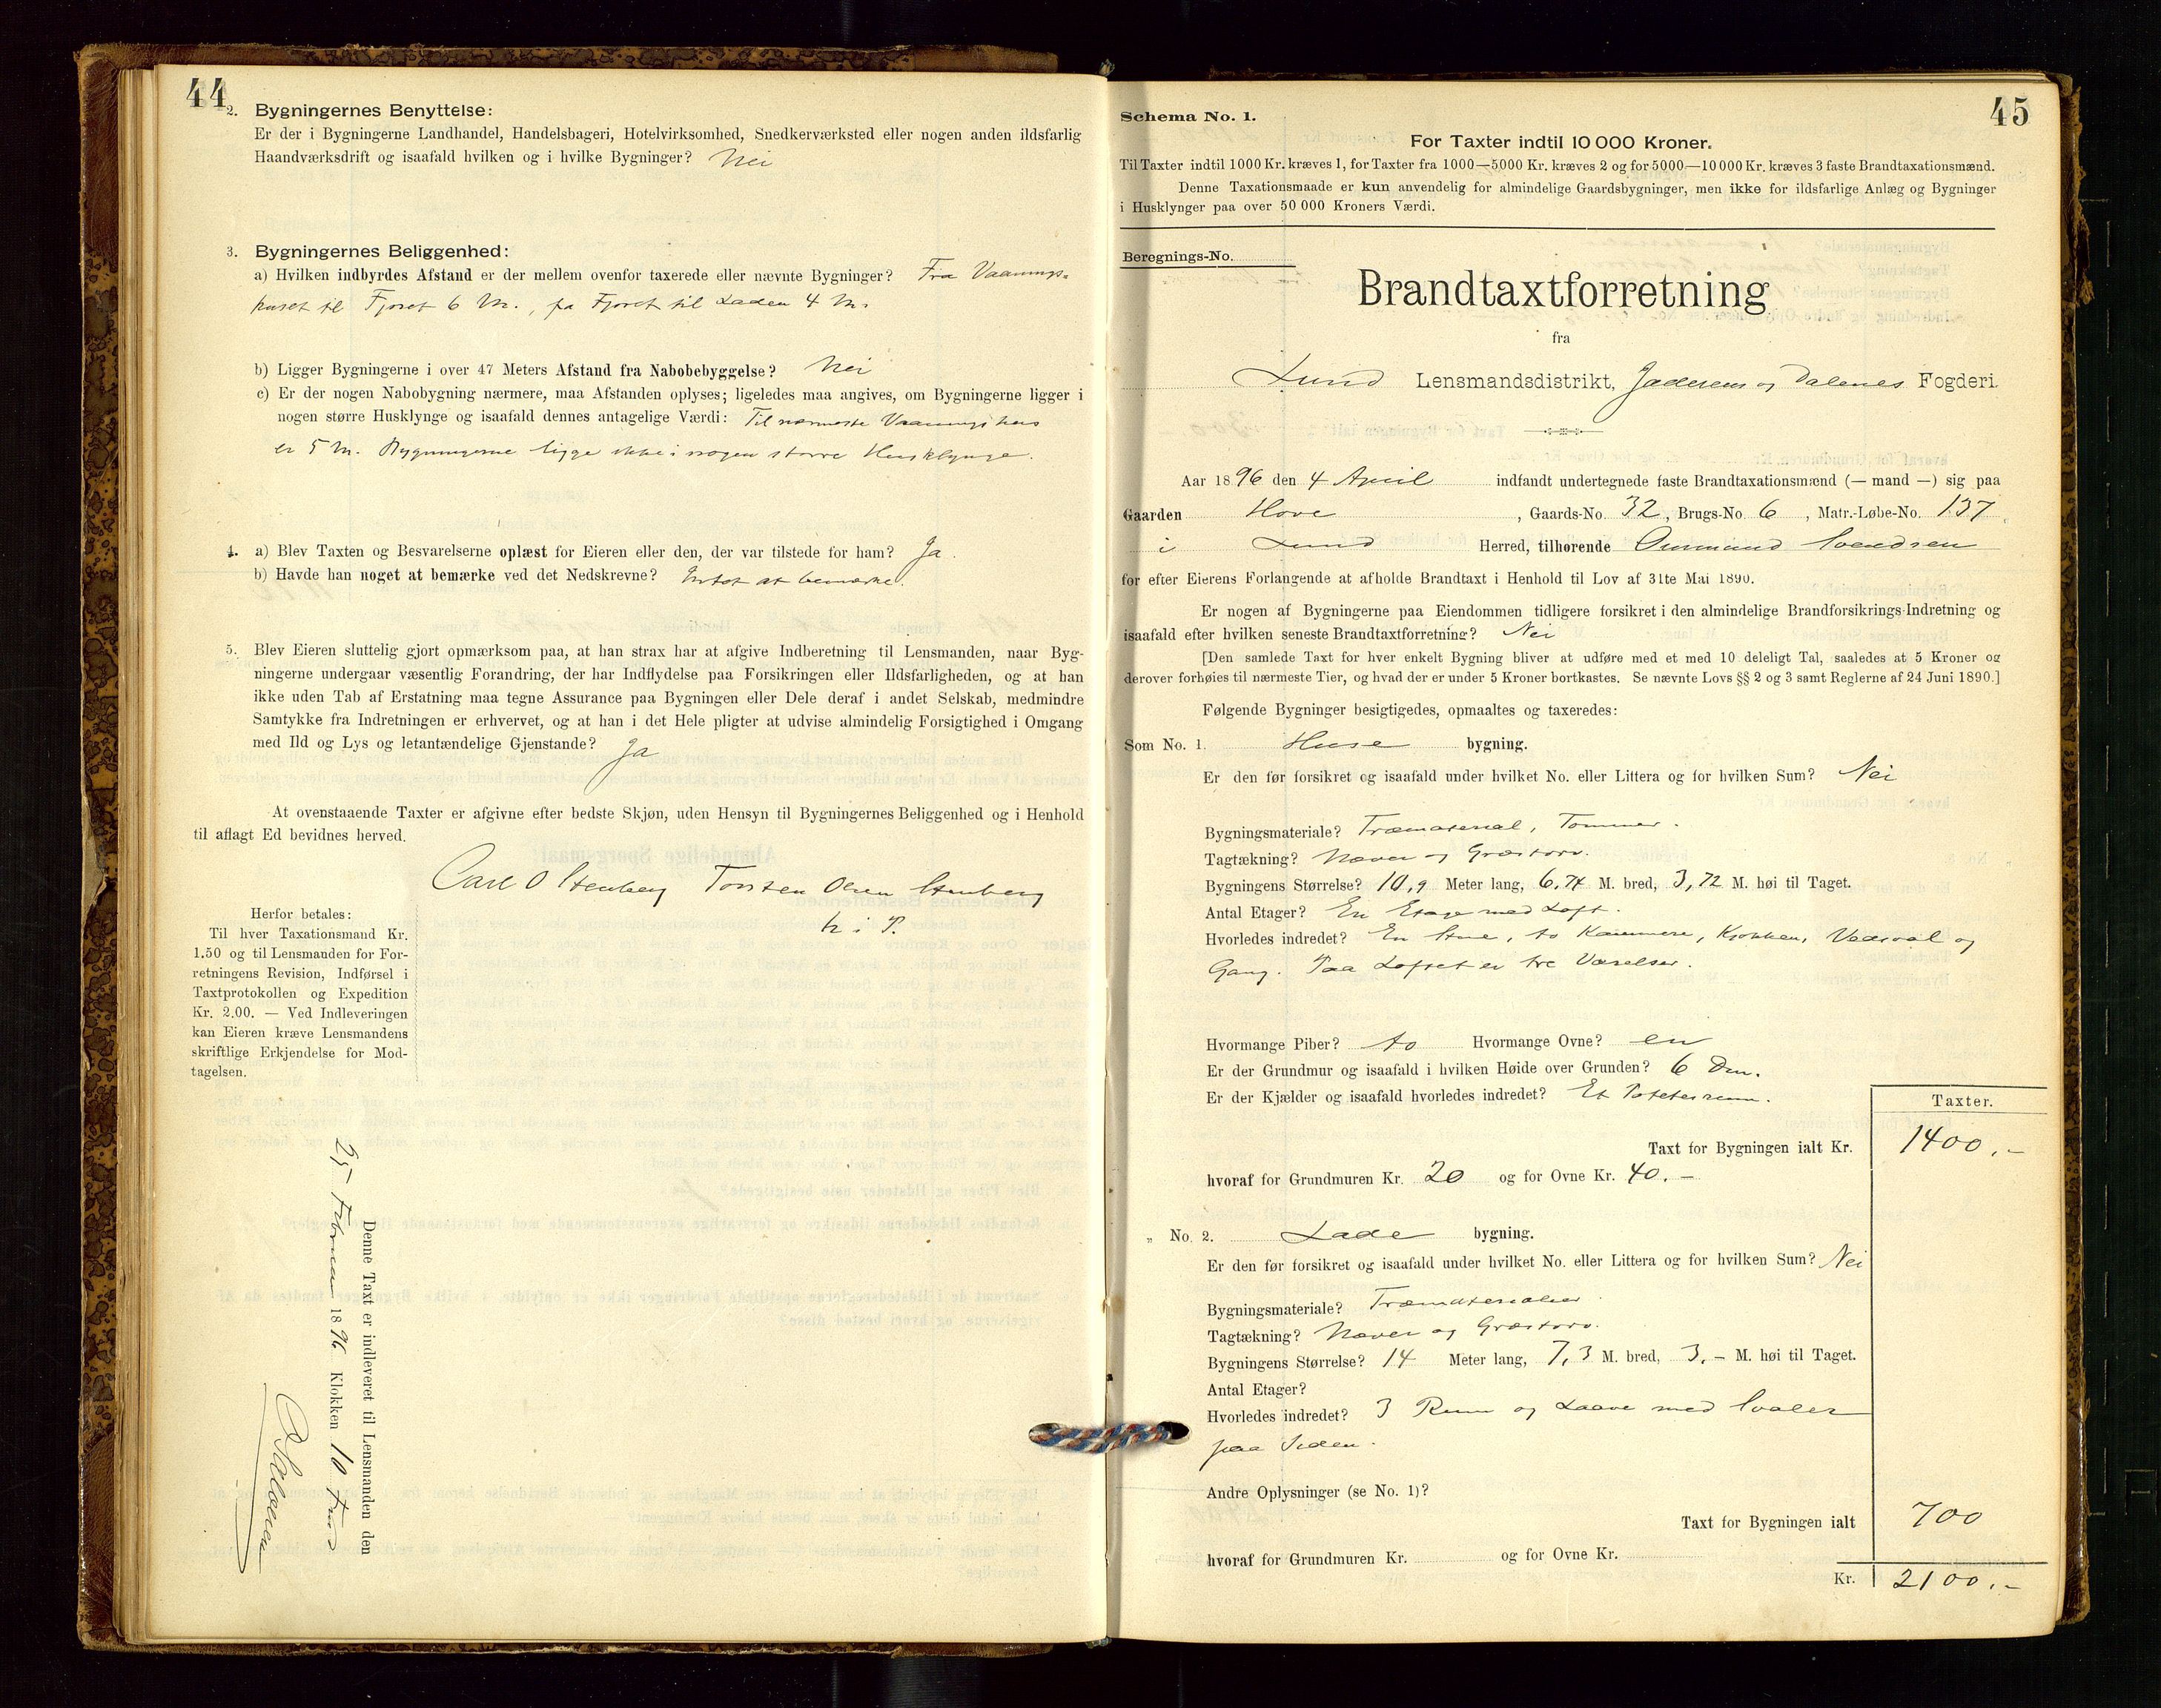 44
2. Bygningernes Benyttelse:
Er der i Bygningerne Landhandel, Handelsbageri, Hotelvirksomhed, Snedkerværksted eller nogen anden ildsfarlig
Haandværksdrift og isaafald hvilken og i hvilke Bygninger? Nei
3. Bygningernes Beliggenhed:
a) Hvilken indbyrdes Afstand er der mellem ovenfor taxerede eller nævnte Bygninger? Fra Vaanings-
huset til Fjøset 6 M., fra Fjøset til Laden 4 M.
b) Ligger Bygningerne i over 47 Meters Afstand fra Nabobebyggelse? Nei
c) Er der nogen Nabobygning nærmere, maa Afstanden oplyses; ligeledes maa angives, om Bygningerne ligger i
nogen større Husklynge og isaafald dennes antagelige Værdi: Til nærmeste Vaaningshus
er 5 M. Bygningerne ligge ikke i nogen større Husklynge.
4. a) Blev Taxten og Besvarelserne oplæst for Eieren eller den, der var tilstede for ham? Ja.
b) Havde han noget at bemærke ved det Nedskrevne? Intet at bemærke.
5. Blev Eieren sluttelig gjort opmærksom paa, at han strax har at afgive Indberetning til Lensmanden, naar Byg-
ningerne undergaar væsentlig Forandring, der har Indflydelse paa Forsikringen eller Ildsfarligheden, og at han
ikke uden Tab af Erstatning maa tegne Assurance paa Bygningen eller Dele deraf i andet Selskab, medmindre
Samtykke fra Indretningen er erhvervet, og at han i det Hele pligter at udvise almindelig Forsigtighed i Omgang
med Ild og Lys og letantændelige Gjenstande? Ja
At ovenstaaende Taxter er afgivne efter bedste Skjøn, uden Hensyn til Bygningernes Beliggenhed og i Henhold
til aflagt Ed bevidnes herved.
Carl O Stenberg Torsten Olsen Stenberg
Herfor betales:
Til hver Taxationsmand Kr.
1.50 og til Lensmanden for For-
retningens Revision, Indførsel i
Taxtprotokollen og Expedition
Kr. 2.00. — Ved Indleveringen
kan Eieren kræve Lensmandens
skriftlige Erkjendelse for Mod-
tagelsen.
Denne Taxt er indleveret til Lensmanden den
25 Februar 1896 Klokken 10 Form
45
Schema No. 1.
For Taxter indtil 10 000 Kroner.
Til Taxter indtil 1000 Kr. kræves 1, for Taxter fra 1000—5000 Kr. kræves 2 og for 5000—10000 Kr. kræves 3 faste Brandtaxationsmænd.
Denne Taxationsmaade er kun anvendelig for almindelige Gaardsbygninger, men ikke for ildsfarlige Anlæg og Bygninger
i Husklynger paa over 50 000 Kroners Værdi.
Beregnings-No.
Brandtaxtforretning
fra
Lund Lensmandsdistrikt, Jæderens og Dalenes Fogderi.
Aar 1896 den 4 April indfandt undertegnede faste Brandtaxationsmænd (— mand —) sig paa
Gaarden Hove, Gaards-No. 32, Brugs-No. 6, Matr.-Løbe-No. 137
i Lund Herred, tilhørende Ommund Svendsen
for efter Eierens Forlangende at afholde Brandtaxt i Henhold til Lov af 31te Mai 1890.
Er nogen af Bygningerne paa Eiendommen tidligere forsikret i den almindelige Brandforsikrings-Indretning og
isaafald efter hvilken seneste Brandtaxtforretning? Nei
[Den samlede Taxt for hver enkelt Bygning bliver at udføre med et med 10 deleligt Tal, saaledes at 5 Kroner og
derover forhøies til nærmeste Tier, og hvad der er under 5 Kroner bortkastes. Se nævnte Lovs §§ 2 og 3 samt Reglerne af 24 Juni 1890.]
Følgende Bygninger besigtigedes, opmaaltes og taxeredes:
Som No. 1. Huse bygning.
Er den før forsikret og isaafald under hvilket No. eller Littera og for hvilken Sum? Nei
Bygningsmateriale? Træmaterial, Tømmer.
Tagtækning? Næver og Græstorv.
Bygningens Størrelse? 10,9 Meter lang, 6,74 M. bred, 3,72 M. høi til Taget.
Antal Etager? En Etage med Loft.
Hvorledes indredet? En Stue, to Kammere, Kjøkken, Vedsval og
Gang. Paa Loftet er tre Værelser.
Hvormange Piber? to Hvormange Ovne? en
Er der Grundmur og isaafald i hvilken Høide over Grunden? 6 Dm.
Er der Kjælder og isaafald hvorledes indredet? Et Potetesrum.
Taxter.
Taxt for Bygningen ialt Kr. 1400.-
hvoraf for Grundmuren Kr. 20 og for Ovne Kr. 40.-
„ No. 2. Lade bygning.
Er den før forsikret og isaafald under hvilket No. eller Littera og for hvilken Sum? Nei
Bygningsmateriale? Træmaterialier.
Tagtækning? Næver og Græstorv.
Bygningens Størrelse? 14 Meter lang, 7,3 M. bred, 3,- M. høi til Taget.
Antal Etager?
Hvorledes indredet? 3 Rum og Laave med Svaler
paa Siden.
Andre Oplysninger (se No. 1)?
Taxt for Bygningen ialt 700
hvoraf for Grundmuren Kr. og for Ovne Kr.
Kr. 2100.-